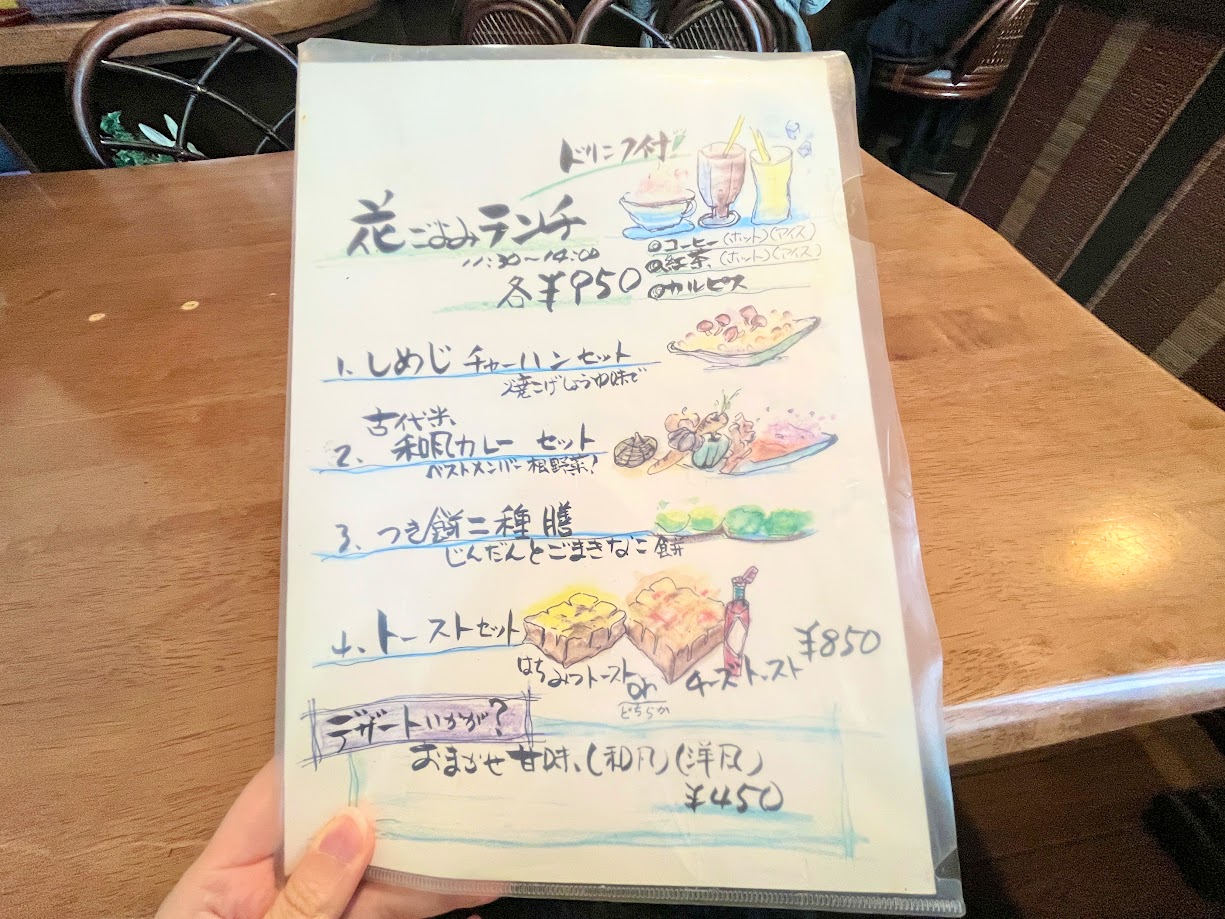 ドリンク付!
花ごよみランチ
11:30〜14:00
各¥950
コーヒー(ホット)(アイス)
紅茶(ホット)(アイス)
カルピス
1. しめじチャーハンセット
焼こげしょうゆ味で
古代米、
2、和風カレーセット
ベストメンバー根野菜!
3、つき餅二種膳
じんだんとごまきなこ餅
4、トーストセット
はちみつトースト or チーズトースト ¥850
どちらか
デザートいかが?
おまかせ甘味、(和風)(洋風)
¥450